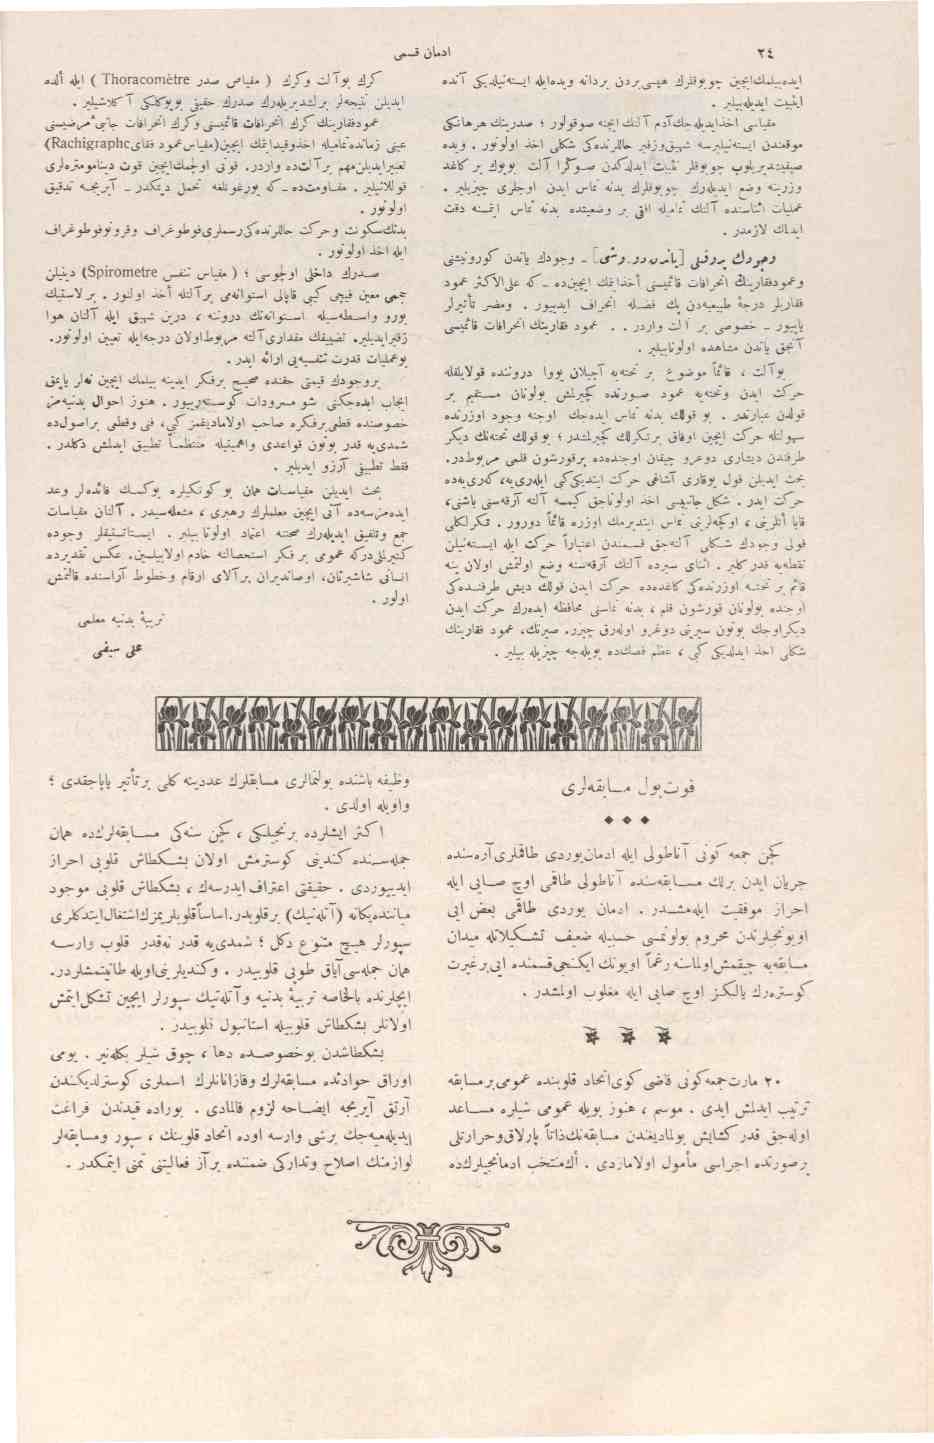 ٢٤
ادمان قسمی
ایده‌بیلمك‌ایچین چوبوقلرك هپسی‌بردن بردانه ویده‌ایله ایسته‌نیلدیكی آنده
تثبیت ایدیله‌بیلیر .
مقیاسی اخذایدیله‌جك‌آدم آلتك ایچنه صوقولور ؛ صدرینك هرهانكی
موقعندن ایسته‌نیلیرسه شهیق‌وزفیر حاللرنده‌كی شكلی اخذ اولونور . ویده
صیقیشدیریلوب چوبوقلر تثبیت ایدلدكدن صوكرا آلت بویوك بر كاغد
وزرینه وضع ایدیله‌رك چوبوقلرك بدنه تماس ایدن اوجلری چیزیلیر .
عملیات اثناسنده آلتك تمامیله افقی بر وضعیتده بدنه تماس ایتمسنه دقت
ایدلمك لازمدر .
وجودك پروفیلی [یاندن دور وشی] ـ وجودك یاندن كورونیشنی
وعمودفقارینك انحرافات قائمیسی أخذایتمك ایچین‌ده ـ كه علی‌الاكثر عمود
فقاریلر درجهٔ طبیعیه‌دن پك فضله انحراف ایدییور . ومضر تأثیرلر
یاپییور ـ خصوصی بر آلت واردر . . عمود فقارینك انحرافات قائمیسی
آنجق یاندن مشاهده اولونابیلیر .
بوآلت ، قائماً موضوع بر تخته‌یه آچیلان یووا دروننده قولایلقله
حركت ایدن وتخته‌یه عمود صورتده كچیرلمش بولونان مستقیم بر
قولدن عبارتدر . بو قولك بدنه تماس ایده‌جك اوجنه وجود اوزرنده
سهولتله حركت ایچین اوفاق برتكرلك كچیرلمشدر ؛ بو قولك تخته‌نك دیكر
طرفندن دیشاری دوغرو چیقان اوجنده‌ده برقورشون قلمی مربوطدر .
بحث ایدیلن قول یوقاری آشاغی حركت ایتدیكی كبی ایله‌ری‌یه، كه‌ری‌یه‌ده
حركت ایدر . شكل جانبیسی اخذ اولوناجق كیمسه آلته آرقه‌سنی باشنی،
قولی وجودك شكلی آلنه‌جق قسمندن اعتباراً حركت ایله ایسته‌نیلن
نقطه‌یه قدر كلیر . اثنای سیرده آلتك آرقه‌سنه وضع اولنمش اولان ینه
قائم بر تخته اوزرنده‌كی كاغدده حركت ایدن قولك دیش طرفنده‌كی
اوجنده بولونان قورشون قلم ، بدنه تماسنی محافظه ایده‌رك حركت ایدن
دیكراوجك بوتون سیرینی دوغرو اوله‌رق چیزر. صیرتك، عمود فقارینك
شكلی اخذ ایدلدیكی كبی ، عظم قصك‌ده بویله‌جه چیزیله بیلیر .
كرك بوآلت وكرك ( مقیاص صدر Thoracomètre ) ایله ألده
ایدیلن نتیجه‌لر برلشدیریله‌رك صدرك حقیقی بویوكلكی آكلاشیلیر .
عمودفقارینك كرك انحرافات قائمیسنی وكرك انحرافات جانبیهٔ مرضیسنی
عینی زمانده‌تمامیله اخذوقیدایتمك ایچین(مقیاس‌عمود فقایRachigraphe)
تعبیرایدیلن‌مهم برآلت‌ده واردر. قوتی اولچمك‌ایچین قوت دینامومتره‌لری
قوللانیلیر . مقاومت‌ده ـ كه یورغونلغه تحمل دیمكدر ـ آیریجه تدقیق
اولونور .
بدنك‌سكونت وحركت حاللرنده‌كی‌رسملری‌فوطوغراف وقرونوفوطوغراف
ایله اخذ اولونور .
صدرك داخلی اولچوسی ؛ ( مقیاس تنفس Spirometre) دینیلن
جمی معین فیچی كبی قاپالی استوانه‌می برآلتله أخذ اولنور . برلاستیك
بورو واسطه‌سیله اسطوانه‌نك دروننه ، درین شهیق ایله آلنان هوا
زفیرایدیلیر. تضییقك مقداری‌آلته مربوط‌اولان درجه‌ایله تعیین اولونور.
بوعملیات قدرت تنفسیه‌یی ارائه ایدر .
بروجودك قیمتی حقنده صحیح برفكر ایدینه بیلمك ایچین نه‌لر یاپمق
ایجاب ایده‌جكنی شو مسرودات كوستریور . هنوز احوال بدنیه‌مز
خصوصنده قطعی‌برفكره صاحب اولامادیغمز كبی، فنی وقطعی براصول‌ده
شمدی‌یه قدر بوتون قواعدی واهمیتیله منتظماً تطبیق ایدلمش دكلدر .
فقط تطبیقی آرزو ایدیلیر .
بحث ایدیلن مقیاسات همان بو كونكیلره یوكسك فائده‌لر وعد
ایده‌مزسه‌ده آتی ایچین معلملرك رهبری ، مشعله‌سیدر . آلنان مقیاسات
جمع وتلفیق ایدیله‌رك صحتنه اعتماد اولونا بیلیر . ایستاتستیقلر وجوده
كتیرلملی‌دركه عمومی بر فكر استحصالنه خادم اولابیلسین. عكس تقدیرده
انسانی شاشیرتان، اوصاندیران برآلای ارقام وخطوط آراسنده قالنمش
اولور .
تربیهٔ بدنیه معلمی
علی سیفی
فوت‌بول مسابقه‌لری
كچن جمعه كونی آناطولی ایله ادمان‌یوردی طاقملری‌آره‌سنده
جریان ایدن برلك مسابقه‌سنده آناطولی طاقمی اوچ صایی ایله
احراز موفقیت ایله‌مشدر . ادمان یوردی طاقمی بعض ایی
اویونجیلرندن محروم بولونمسی حسبیله ضعیف تشكیلاتله میدان
مسابقه‌یه چیقمش‌اولماسنه رغماً اویونك ایكنجی‌قسمنده ایی‌برغیرت
كوستره‌رك یالكز اوچ صایی ایله مغلوب اولمشدر .
٢٠ مارت‌جمعه‌كونی قاضی كوی‌اتحاد قلوبنده عمومی‌برمسابقه
ترتیب ایدلمش ایدی . موسم ، هنوز بویله عمومی شیلره مساعد
اوله‌جق قدر كشایش بولمادیغندن مسابقه‌نك‌ذاتاً پارلاق‌وحرارتلی
برصورتده اجراسی مأمول اولامازدی . أك‌منتخب ادمانجیلرك‌ده
وظیفه باشنده بولنمالری مسابقلرك عددینه كلی برتأثیر یاپاجقدی ؛
واویله اولدی .
اكثر ایشلرده برنجیلكی ، كچن سنه‌كی مسابقه‌لرك‌ده همان
جمله‌سنده كندینی كوسترمش اولان بشكطاش قلوبی احراز
ایدییوردی . حقیقتی اعتراف ایدرسه‌ك ، بشكطاش قلوبی موجود
میاننده‌یكانه (آتله‌تیك) برقلوبدر.اساساًقلوبلریمزك‌اشتغال‌ایتدكلری
سپورلر هیچ متنوع دكل ؛ شمدی‌یه قدر نه‌قدر قلوب وارسه
همان جمله‌سی‌آیاق طوپی قلوبیدر . وكندیلرینی‌اویله طانیتمشلردر.
ایچلرنده بالخاصه تربیهٔ بدنیه وآتله‌تیك سپورلر ایچین تشكل‌ایتمش
اولانلر بشكطاش قلوبیله استانبول قلوبیدر .
بشكطاشدن بوخصوصده دها ، چوق شیلر بكله‌نیر . یومی
اوراق حوادثده مسابقه‌لرك وقازانانلرك اسملری كوسترلدیكندن
آرتق آیریجه ایضاحه لزوم قالمادی . بوراده قیدندن فراغت
ایدیله‌میه‌جك برشی وارسه اوده اتحاد قلوبنك ، سپور ومسابقه‌لر
لوازمنك اصلاح وتداركی ضمننده برآز فعالیتنی تمنی ایتمكدر .